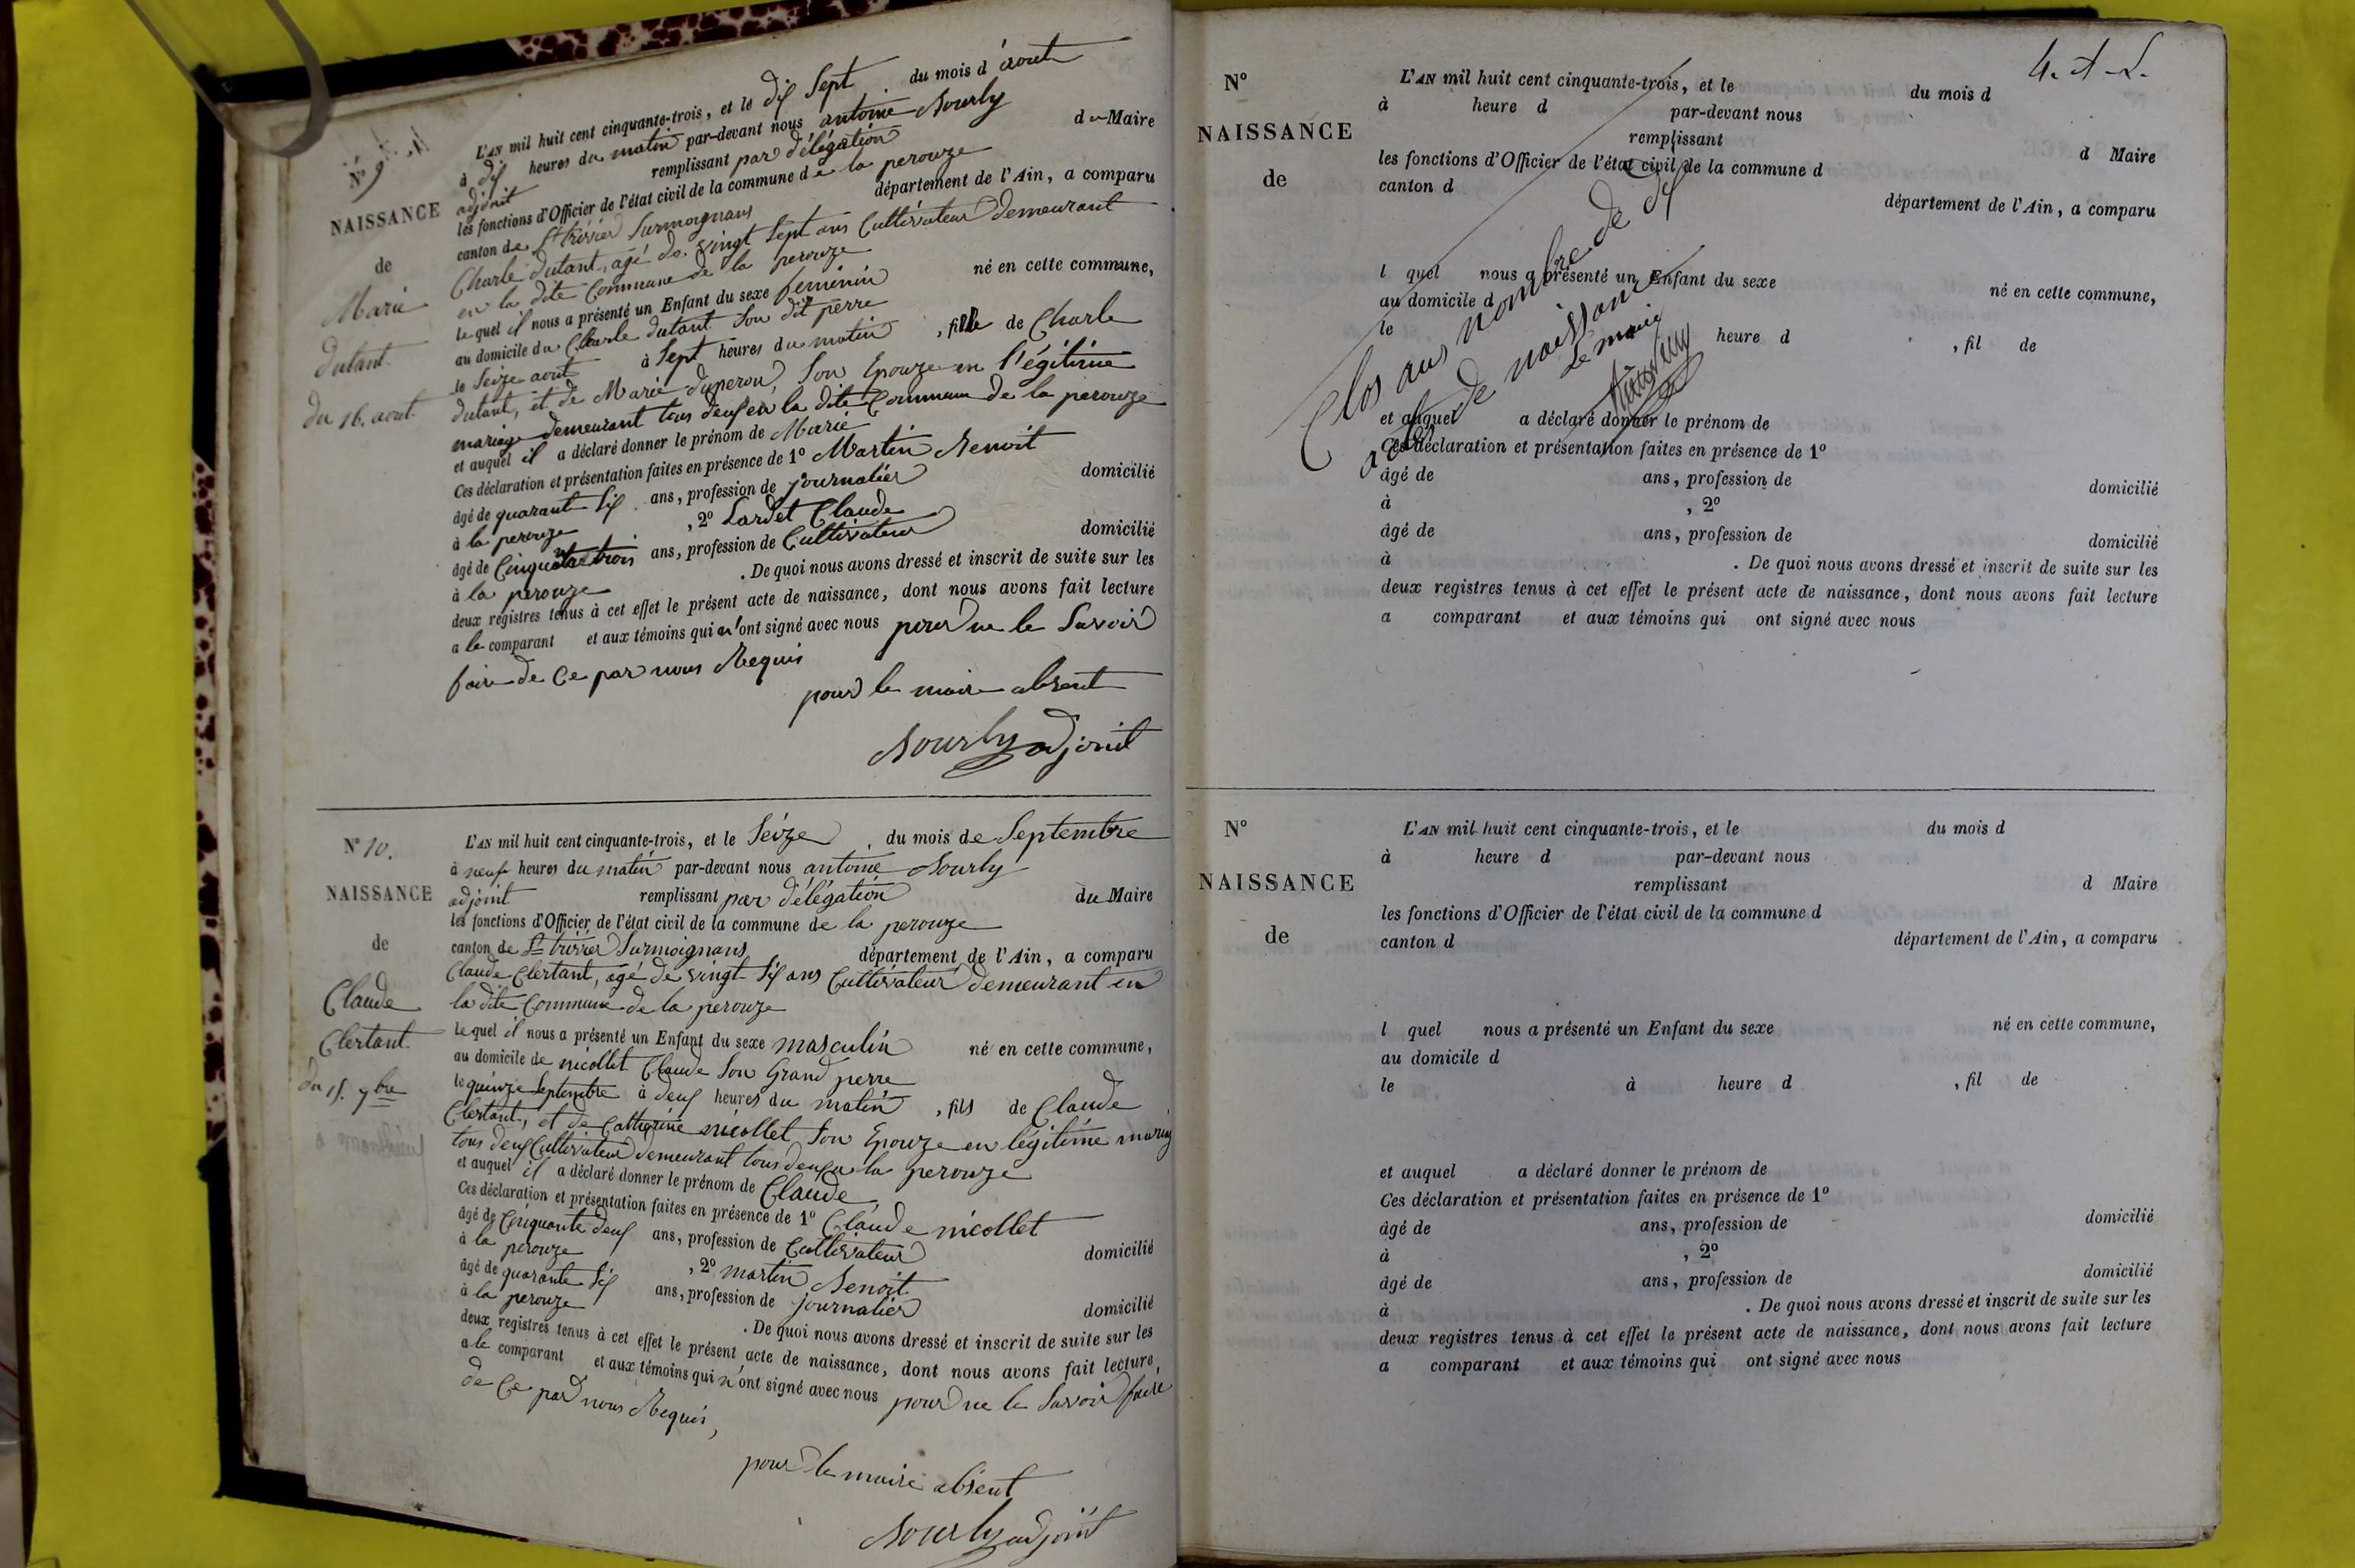 N° 9
NAISSANCE
de
Marie
dutant.
du 16. aout.
L'AN mil huit cent cinquante-trois, et le dix Sept du mois d'aout
à dix heures du matin par-devant nous antoine Nourly
adjoint remplissant par délégation du Maire
les fonctions d'Officier de l'état civil de la commune de la perouze
canton de St trivier Surmoignans département de l'Ain, a comparu
Charle dutant, agé de vingt Sept ans Cultivateur demeurant
en la dite Commune de la perouze
lequel il nous a présenté un Enfant du sexe feminin né en cette commune,
au domicile du Charle dutant Son dit perre
le Seize aout à Sept heures du matin, fille de Charle
dutant, et de Marie duperou, Son Epouze en l'égitime
mariage demeurant tous deux en la dite Commune de la perouze
et auquel il a déclaré donner le prénom de Marie
Ces déclaration et présentation faites en présence de 1° Martin Benoit
âgé de quarant Six ans, profession de journalier domicilié
à la perouze, 2° Lardet Claude
âgé de Cinquante trois ans, profession de Cultivateur domicilié
à la perouze. De quoi nous avons dressé et inscrit de suite sur les
deux registres tenus à cet effet le présent acte de naissance, dont nous avons fait lecture
a le comparant et aux témoins qui n'ont signé avec nous pour ne le Savoir
faire de Ce par nous Requis
pour le maire absent
Nourly adjoint
N° 10.
NAISSANCE
de
Claude
Clertant.
du 15. 7bre
L'AN mil huit cent cinquante-trois, et le Seize du mois de Septembre
à neuf heures du matin par-devant nous antoine Nourly
adjoint remplissant par délégation du Maire
les fonctions d'Officier de l'état civil de la commune de la perouze
canton de St trivier Surmoignans département de l'Ain, a comparu
Claude Clertant, agé de vingt Six ans Cultivateur demeurant en
la dite Commune de la perouze
lequel il nous a présenté un Enfant du sexe masculin né en cette commune,
au domicile de nicollet Claude Son Grand perre
le quinze Septembre à deux heures du matin, fils de Claude
Clertant, et de Catherine nicollet Son Epouze en légitime mariag
tous deux Cultivateur demeurant tous deux a la perouze
et auquel il a déclaré donner le prénom de Claude
Ces déclaration et présentation faites en présence de 1° Claude nicollet
âgé de Cinquante deux ans, profession de Cultivateur domicilié
à la perouze, 2° martin Benoit
âgé de quarante Six ans, profession de journalier domicilié
à la perouze. De quoi nous avons dressé et inscrit de suite sur les
deux registres tenus à cet effet le présent acte de naissance, dont nous avons fait lecture
a le comparant et aux témoins qui n'ont signé avec nous pour ne le Savoir faire
de Ce par nous Requis,
pour le maire absent
Nourly adjoint
N°
NAISSANCE
de
L'AN mil huit cent cinquante-trois, et le du mois d
à heure d par-devant nous
remplissant d Maire
les fonctions d'Officier de l'état civil de la commune d
canton d département de l'Ain, a comparu
l quel nous a présenté un Enfant du sexe né en cette commune,
au domicile d
le heure d , fil de
et auquel a déclaré donner le prénom de
Ces déclaration et présentation faites en présence de 1°
âgé de ans, profession de domicilié
à , 2°
âgé de ans, profession de domicilié
à . De quoi nous avons dressé et inscrit de suite sur les
deux registres tenus à cet effet le présent acte de naissance, dont nous avons fait lecture
a comparant et aux témoins qui ont signé avec nous
Clos aus nombre de dix
actes de naissance
Le maire
N°
NAISSANCE
de
L'AN mil huit cent cinquante-trois, et le du mois d
à heure d par-devant nous
remplissant d Maire
les fonctions d'Officier de l'état civil de la commune d
canton d département de l'Ain, a comparu
l quel nous a présenté un Enfant du sexe né en cette commune,
au domicile d
le à heure d , fil de
et auquel a déclaré donner le prénom de
Ces déclaration et présentation faites en présence de 1°
âgé de ans, profession de domicilié
à , 2°
âgé de ans, profession de domicilié
à . De quoi nous avons dressé et inscrit de suite sur les
deux registres tenus à cet effet le présent acte de naissance, dont nous avons fait lecture
a comparant et aux témoins qui ont signé avec nous